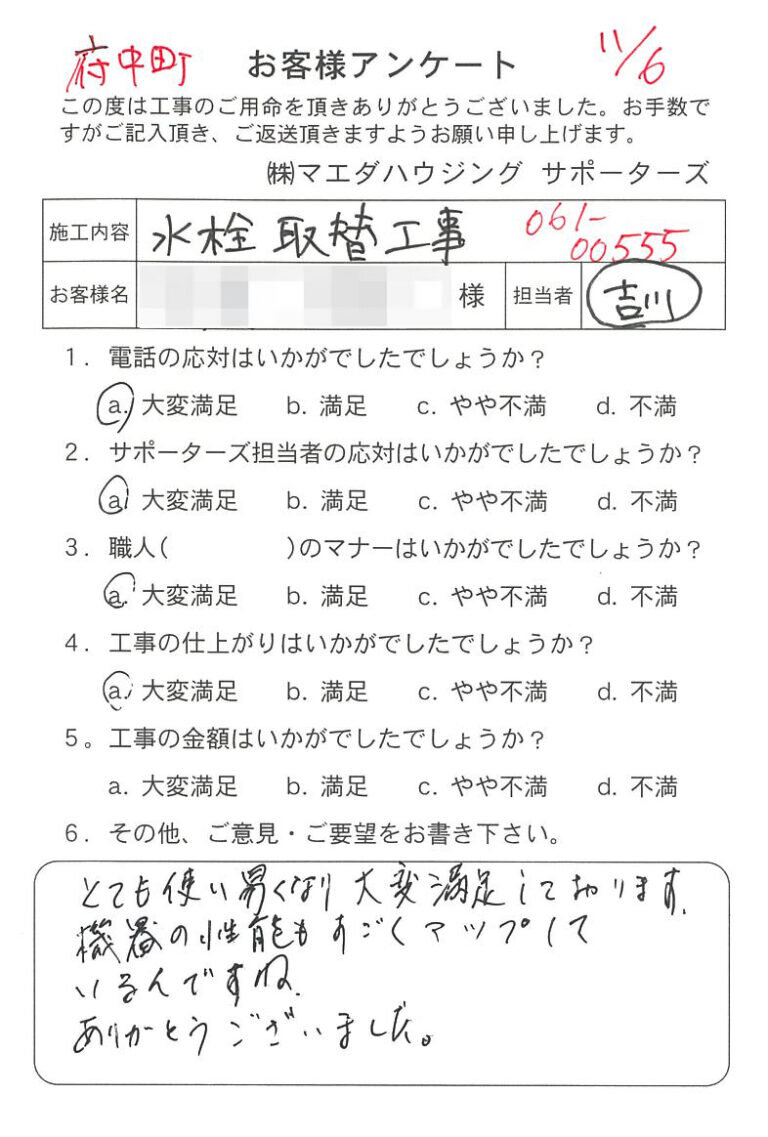 府中町 お客様アンケート 11/6
この度は工事のご用命を頂きありがとうございました。お手数で
すがご記入頂き、ご返送頂きますようお願い申し上げます。
㈱マエダハウジング サポーターズ
施工内容 水栓取替工事 061-
00555
お客様名 様 担当者 吉川
1. 電話の応対はいかがでしたでしょうか?
a. 大変満足 b. 満足 c. やや不満 d. 不満
2. サポーターズ担当者の応対はいかがでしたでしょうか?
a. 大変満足 b. 満足 c. やや不満 d. 不満
3. 職人( )のマナーはいかがでしたでしょうか?
a. 大変満足 b. 満足 c. やや不満 d. 不満
4. 工事の仕上がりはいかがでしたでしょうか?
a. 大変満足 b. 満足 c. やや不満 d. 不満
5。工事の金額はいかがでしたでしょうか?
a. 大変満足 b. 満足 c. やや不満 d. 不満
6. その他、ご意見・ご要望をお書き下さい。
とても使い易くなり大変満足しております.
機器の性能もすごくアップして
いるんですね.
ありがとうございました。